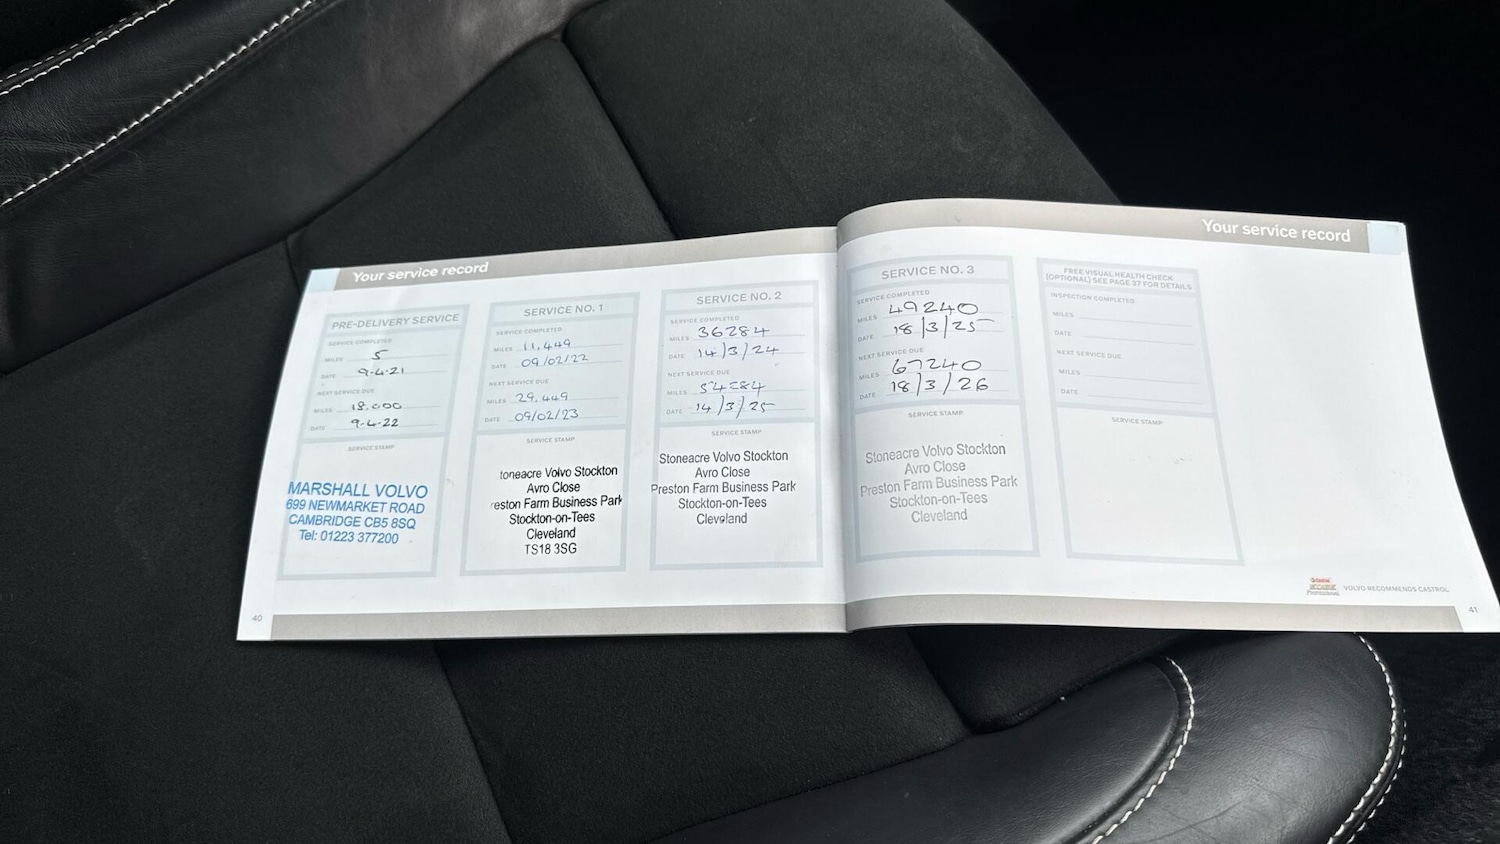 Your service record
PRE-DELIVERY SERVICE
SERVICE COMPLETED
MILES 5
DATE 9-4-21
NEXT SERVICE DUE
MILES 18,000
DATE 9-4-22
SERVICE STAMP
MARSHALL VOLVO
699 NEWMARKET ROAD
CAMBRIDGE CB5 8SQ
Tel: 01223 377200
40
SERVICE NO. 1
SERVICE COMPLETED
MILES 11,449
DATE 09/02/22
NEXT SERVICE DUE
MILES 29,449
DATE 09/02/23
SERVICE STAMP
toneacre Volvo Stockton
Avro Close
reston Farm Business Park
Stockton-on-Tees
Cleveland
TS18 3SG
SERVICE NO. 2
SERVICE COMPLETED
MILES 36284
DATE 14/3/24
NEXT SERVICE DUE
MILES 54284
DATE 14/3/25
SERVICE STAMP
Stoneacre Volvo Stockton
Avro Close
Preston Farm Business Park
Stockton-on-Tees
Cleveland
Your service record
SERVICE NO. 3
SERVICE COMPLETED
MILES 49240
DATE 18/3/25
NEXT SERVICE DUE
MILES 67240
DATE 18/3/26
SERVICE STAMP
Stoneacre Volvo Stockton
Avro Close
Preston Farm Business Park
Stockton-on-Tees
Cleveland
FREE VISUAL HEALTH CHECK
(OPTIONAL) SEE PAGE 37 FOR DETAILS
INSPECTION COMPLETED
MILES
DATE
NEXT SERVICE DUE
MILES
DATE
SERVICE STAMP
Castrol
Professional
VOLVO RECOMMENDS CASTROL
41